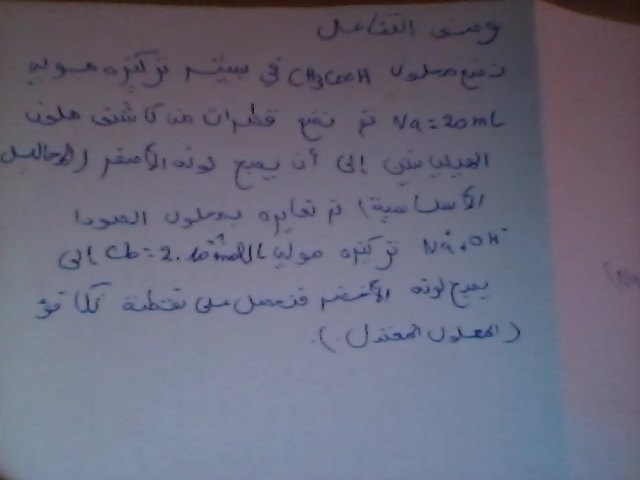 وصف التفاعل
نضع محلول CH3COOH في بيشر تركيزه مولي
Na = 20 mL ثم نضع قطرات من كاشف ملون
الهيليانتين إلى أن يصبح لونه الأصفر (المحاليل
الأساسية) ثم نعايره بمحلول الصودا
Na+, OH- تركيزه موليا Cb = 2.10 mol/L إلى
يصبح لونه الأخضر فنحصل على نقطة تكافؤ
(المحلول المعتدل).